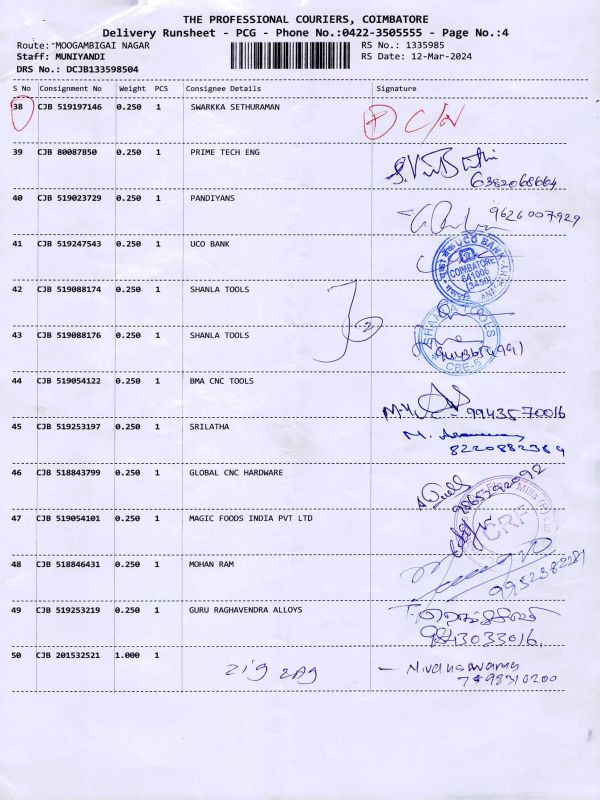 THE PROFESSIONAL COURIERS, COIMBATORE
Delivery Runsheet - PCG - Phone No.:0422-3505555 - Page No.:4
Route: MOOGAMBIGAI NAGAR RS No.: 1335985
Staff: MUNIYANDI RS Date: 12-Mar-2024
DRS No.: DCJB133598504
S No Consignment No Weight PCS Consignee Details Signature
38 CJB 519197146 0.250 1 SWARKKA SETHURAMAN C/N
39 CJB 80087850 0.250 1 PRIME TECH ENG
6382068664
40 CJB 519023729 0.250 1 PANDIYANS 9626007929
41 CJB 519247543 0.250 1 UCO BANK
UCO BANK COIMBATORE 641006
42 CJB 519088174 0.250 1 SHANLA TOOLS
2
43 CJB 519088176 0.250 1 SHANLA TOOLS
SHANLA TOOLS CBE-6
44 CJB 519054122 0.250 1 BMA CNC TOOLS 9943570016
45 CJB 519253197 0.250 1 SRILATHA M.
8220882369
46 CJB 518843799 0.250 1 GLOBAL CNC HARDWARE
47 CJB 519054101 0.250 1 MAGIC FOODS INDIA PVT LTD
CRF
48 CJB 518846431 0.250 1 MOHAN RAM
9952382281
49 CJB 519253219 0.250 1 GURU RAGHAVENDRA ALLOYS
9843033016.
50 CJB 201532521 1.000 1 zig zag